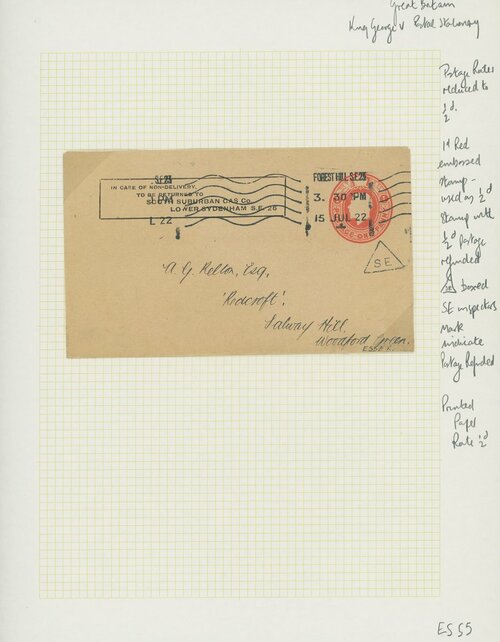 Great Britain
King George V Postal Stationery
Postage Rates
reduced to
½d.
1d Red
embossed
stamp -
used as ½d
stamp with
½d postage
refunded
SE boxed
SE inspectors
mark
indicate
Postage Refunded
Printed
Paper
Rate ½d
S.E.26
IN CASE OF NON-DELIVERY,
TO BE RETURNED TO
SOUTH SUBURBAN GAS Co.
LOWER SYDENHAM S.E. 26
PM
L 22
FOREST HILL S.E.23
3. 30 PM
15 JUL 22
S.E.
A. G. Kellon, Esq,
'Redcroft'.
Salway Hill.
Woodford Green.
ESSEX.
ESS5